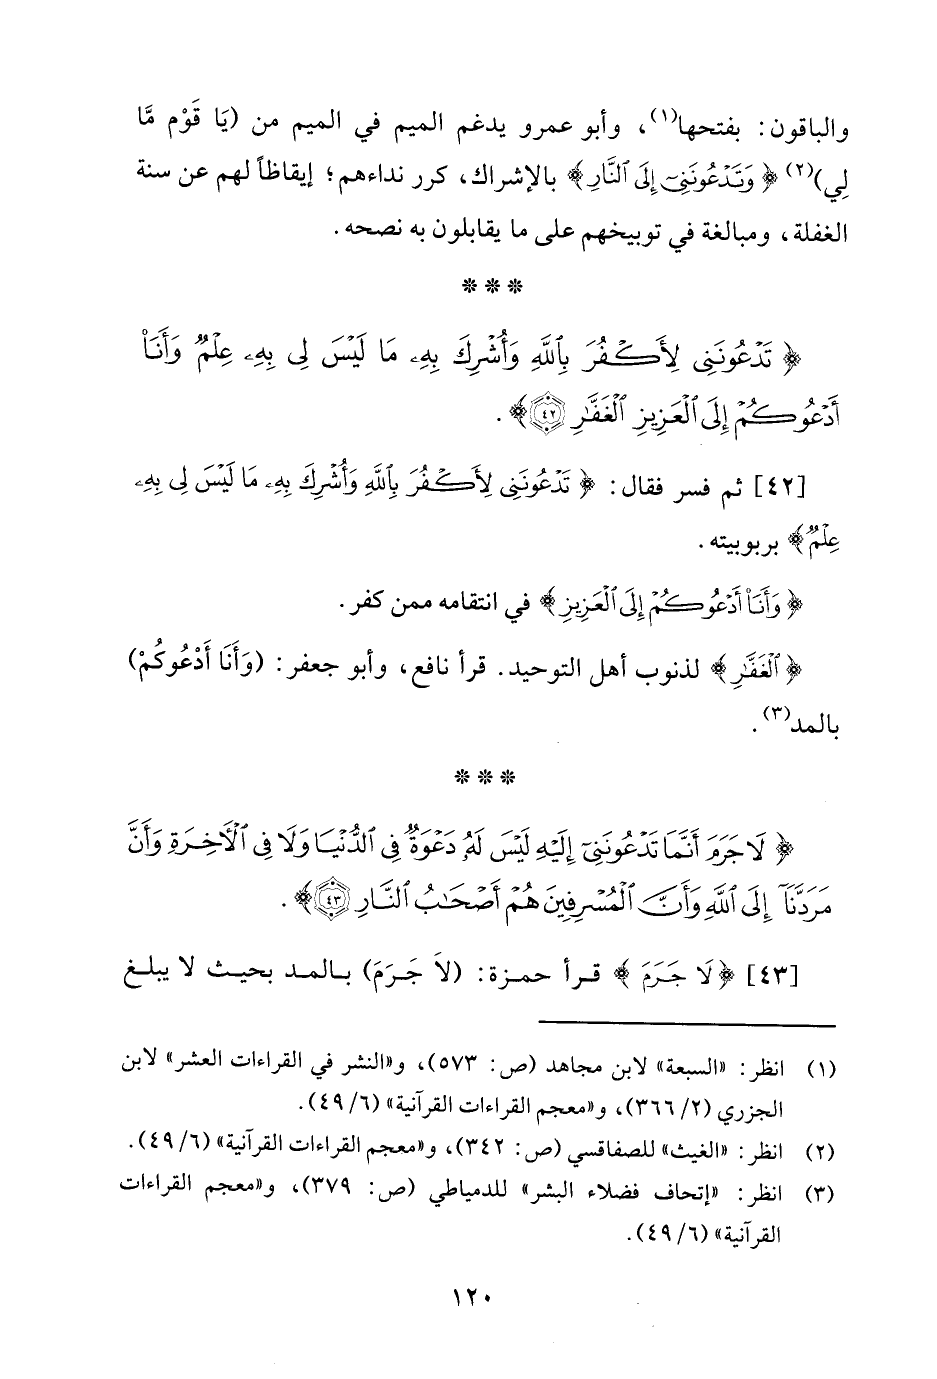 والباقون: بفتحها(١)، وأبو عمرو يدغم الميم في الميم من (يَا قَوْم مَّا
لِي)(٢) ﴿وَتَدْعُونَنِي إِلَى النَّارِ﴾ بالإشراك، كرر نداءهم؛ إيقاظاً لهم عن سنة
الغفلة، ومبالغة في توبيخهم على ما يقابلون به نصحه.
* * *
﴿تَدْعُونَنِي لِأَكْفُرَ بِاللَّهِ وَأُشْرِكَ بِهِ مَا لَيْسَ لِي بِهِ عِلْمٌ وَأَنَا
أَدْعُوكُمْ إِلَى الْعَزِيزِ الْغَفَّارِ ٤٢﴾.
[٤٢] ثم فسر فقال: ﴿تَدْعُونَنِي لِأَكْفُرَ بِاللَّهِ وَأُشْرِكَ بِهِ مَا لَيْسَ لِي بِهِ
عِلْمٌ﴾ بربوبيته.
﴿وَأَنَا أَدْعُوكُمْ إِلَى الْعَزِيزِ﴾ في انتقامه ممن كفر.
﴿الْغَفَّارِ﴾ لذنوب أهل التوحيد. قرأ نافع، وأبو جعفر: (وَأَنَا أَدْعُوكُمْ)
بالمد(٣).
* * *
﴿لَا جَرَمَ أَنَّمَا تَدْعُونَنِي إِلَيْهِ لَيْسَ لَهُ دَعْوَةٌ فِي الدُّنْيَا وَلَا فِي الْآخِرَةِ وَأَنَّ
مَرَدَّنَا إِلَى اللَّهِ وَأَنَّ الْمُسْرِفِينَ هُمْ أَصْحَابُ النَّارِ ٤٣﴾.
[٤٣] ﴿لَا جَرَمَ﴾ قرأ حمزة: (لاَ جَرَمَ) بالمد بحيث لا يبلغ
(١) انظر: «السبعة» لابن مجاهد (ص: ٥٧٣)، و«النشر في القراءات العشر» لابن
الجزري (٢/ ٣٦٦)، و«معجم القراءات القرآنية» (٦/ ٤٩).
(٢) انظر: «الغيث» للصفاقسي (ص: ٣٤٢)، و«معجم القراءات القرآنية» (٦/ ٤٩).
(٣) انظر: «إتحاف فضلاء البشر» للدمياطي (ص: ٣٧٩)، و«معجم القراءات
القرآنية» (٦/ ٤٩).
١٢٠